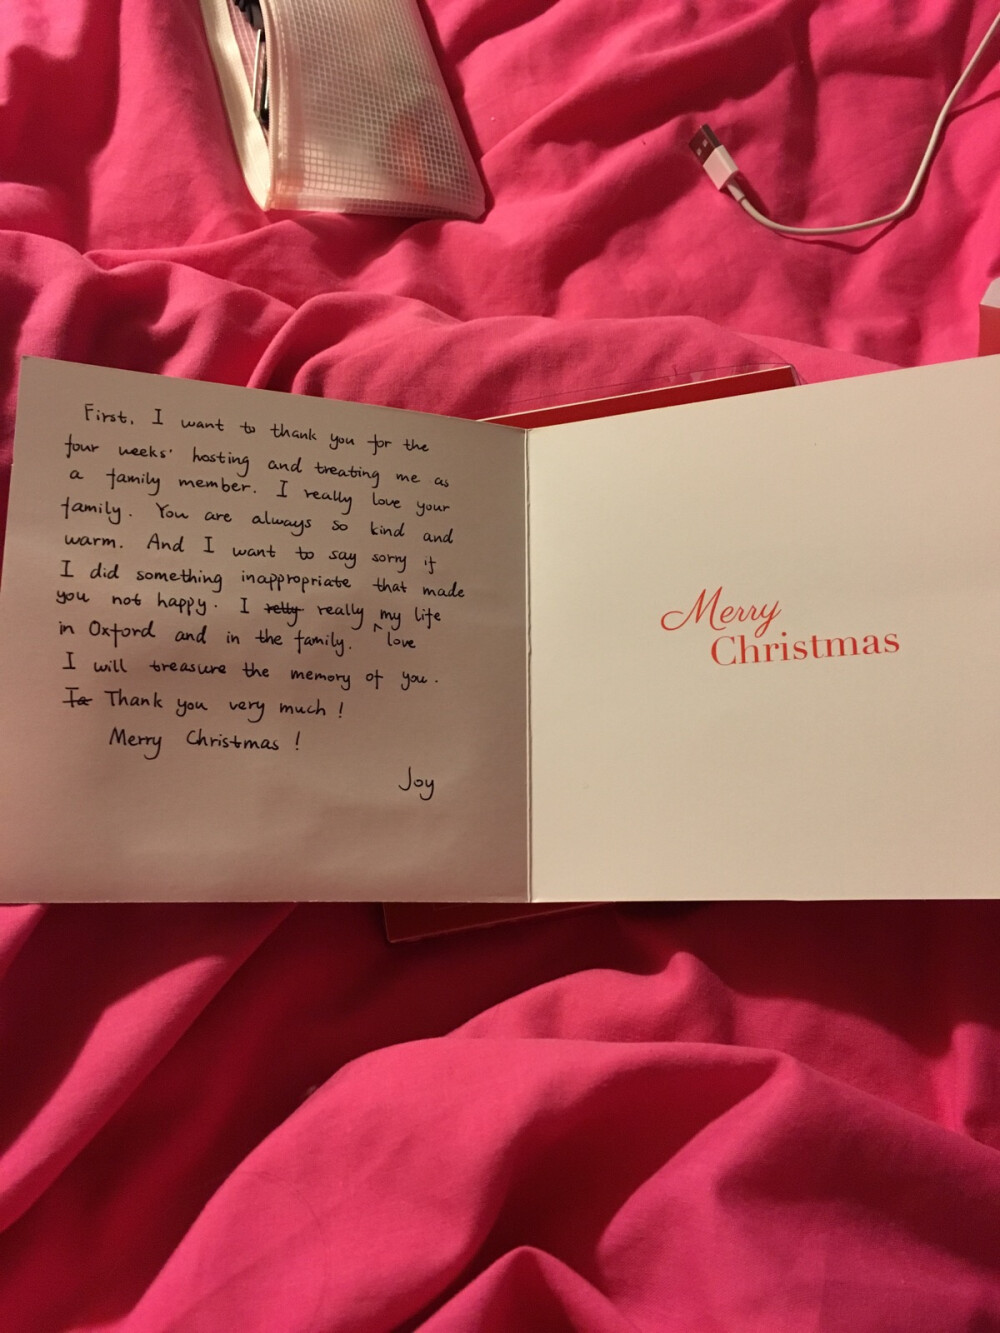 First, I want to thank you for the
four weeks' hosting and treating me as
a family member. I really love your
family. You are always so kind and
warm. And I want to say sorry if
I did something inappropriate that made
you not happy. I relly really my life
in Oxford and in the family. ^ love
I will treasure the memory of you.
Ia Thank you very much !
Merry Christmas !
Joy
Merry
Christmas